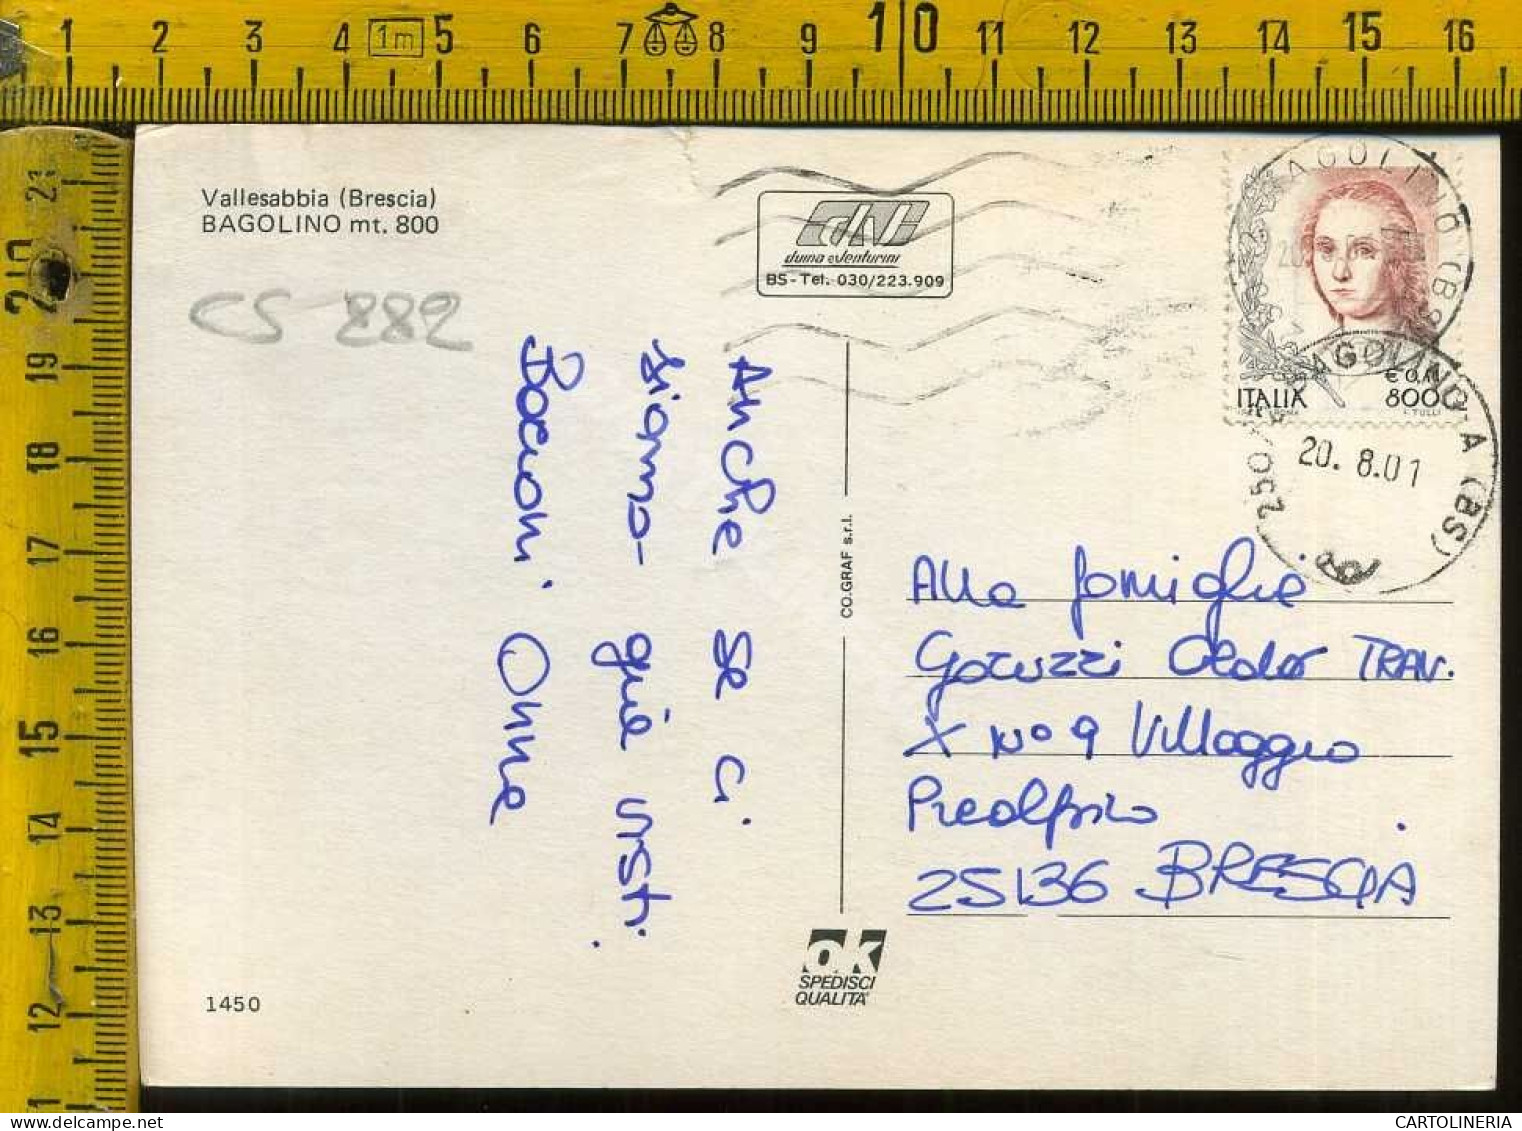 1 2 3 4 1m 5 6 7 8 9 10 11 12 13 14 15 16
21 20 19 18 17 16 15 14 13 12 11
Vallesabbia (Brescia)
BAGOLINO mt. 800
CS 882
duina e venturini
BS - Tel. 030/223.909
Anche se ci
siamo già visti.
Bacioni Anna
CO.GRAF s.r.l.
AGOLINO (BS)
ITALIA
800
F. TULLI
BAGOLINO A (BS)
20. 8.01
Alla famiglia
Aldo TRAV.
X N° 9 Villaggio
Prealpino
25136 BRESCIA
ok
SPEDISCI
QUALITA'
1450
CARTOLINERIA